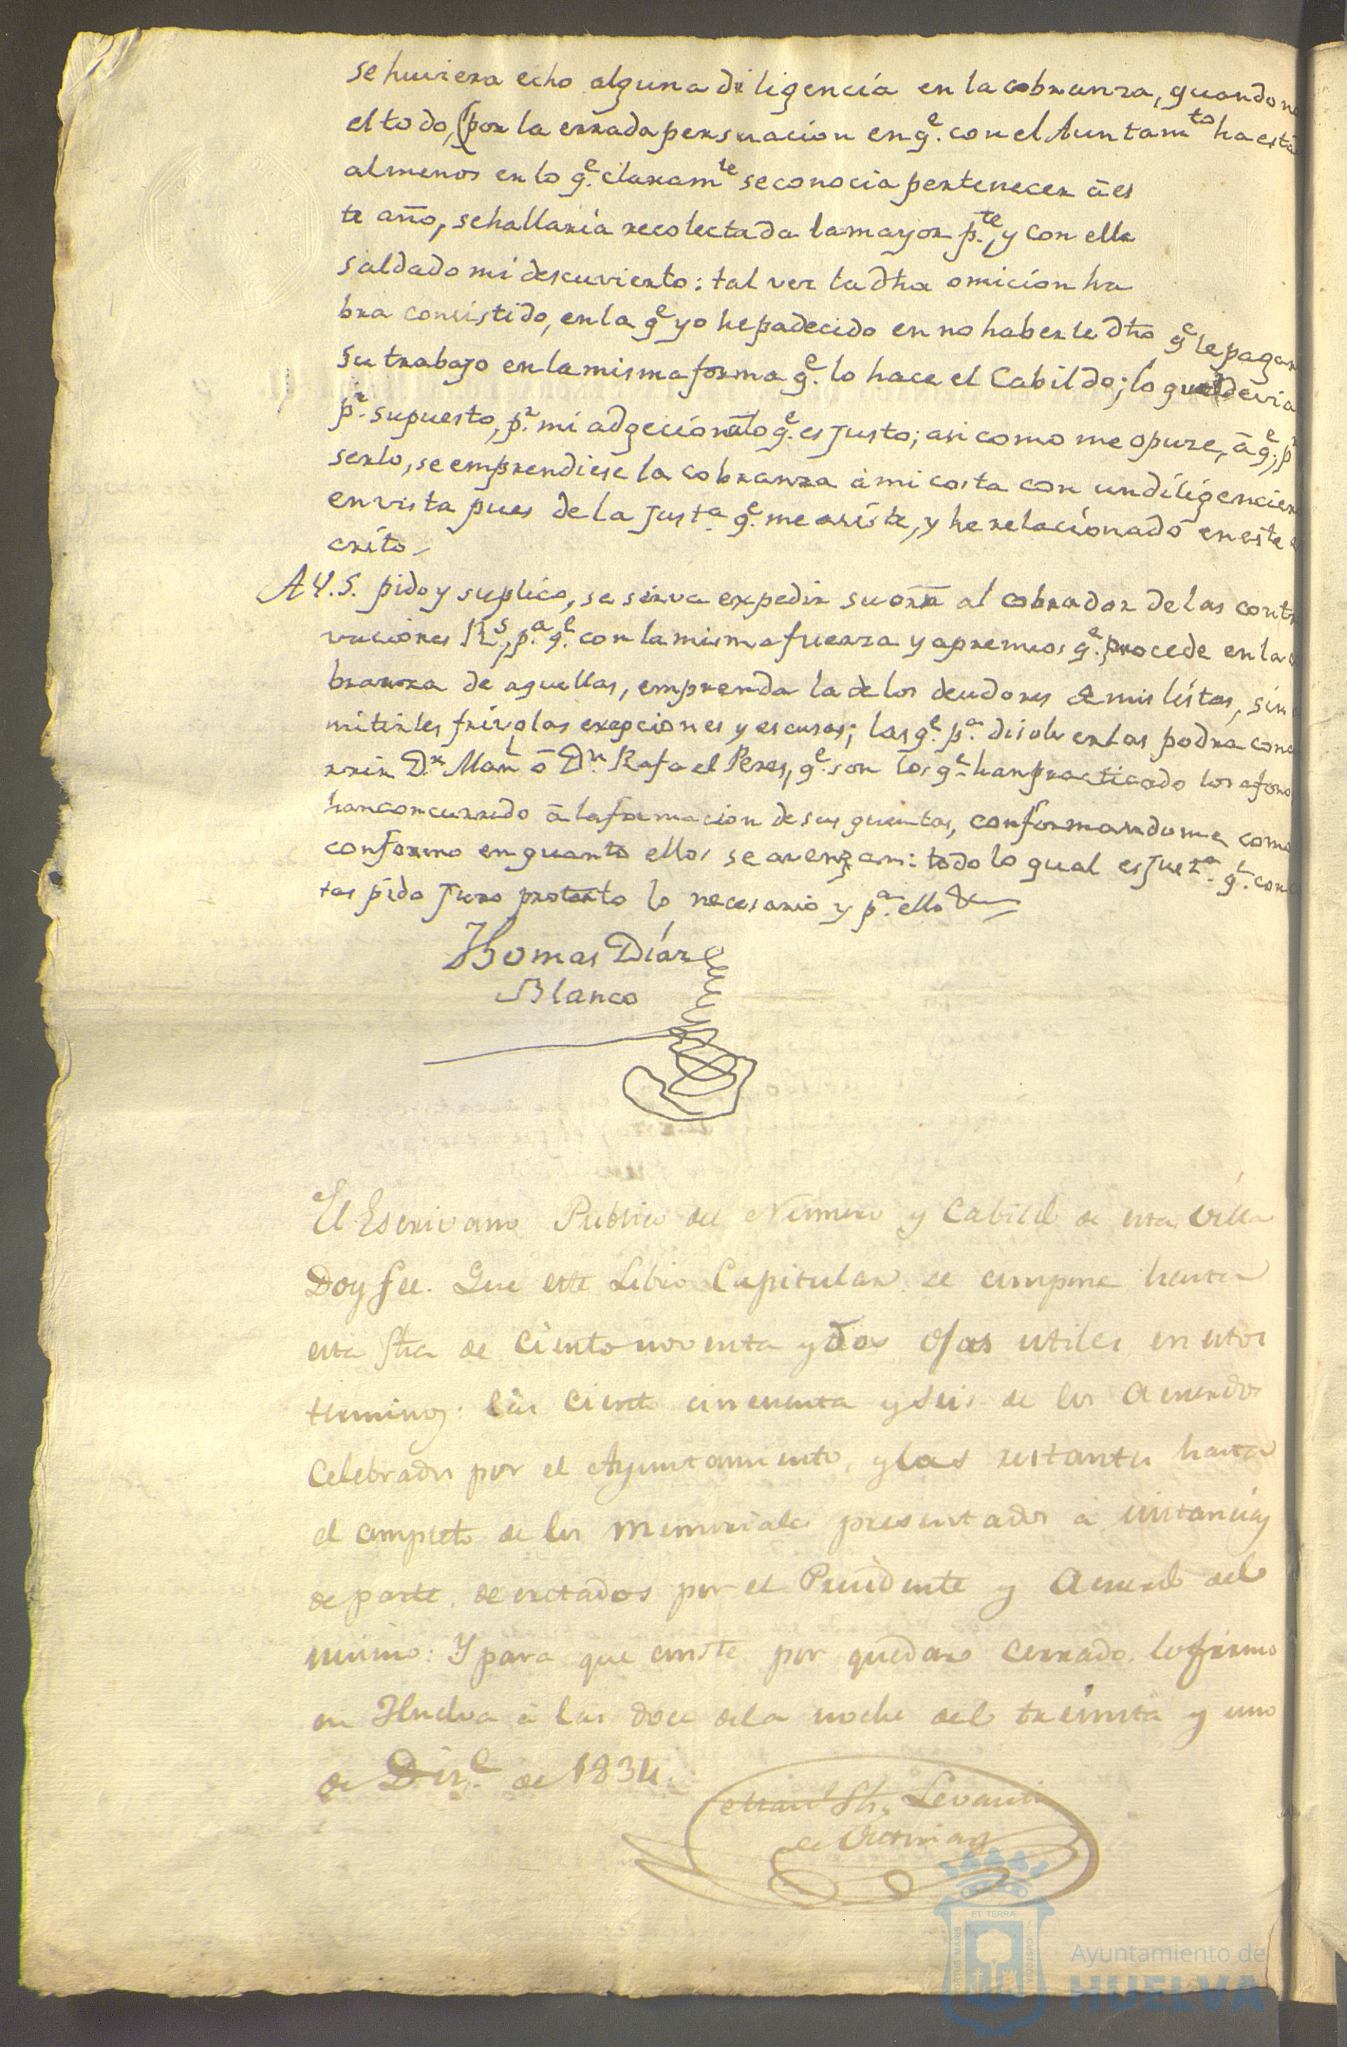 se huviera echo alguna diligencia en la cobranza, quando no
el todo, (por la errada persuacion en q.e con el Auntam.to ha esta
al menos en lo q.e claram.te se conocia pertenecer á es
te año, se hallaria recolectada la mayor p.te, y con ella
saldado mi descuvierto: tal vez la dha omicion ha
bra consistido, en la q.e yo he padecido en no haberle dho q.e le pagar
su trabajo en la misma forma q.e lo hace el Cabildo; lo que devia
p.r supuesto, p.r mi adecion á lo q.e es justo; asi como me opuze, á q.e, p.r
serlo, se emprendiese la cobranza á mi costa con un diligencier
en vista pues de la just.a q.e me asiste, y he relacionado en este
crito
A V.S. pido y suplico, se sirva expedir su orn al cobrador de las contri
vuciones R.s, p.a q.e con la misma fuerza y apremios q.e procede en la
branza de aquellas, emprenda la de los deudores de mis listas, sin
mitirles frivolas excepciones y escusas; las q.e p.a disolverlas podra concu
rrir D.n Man.l ó D.n Rafael Peres, q.e son los q.e han practicado los aforo
han concurrido á la formacion de sus quentas, conformandome como
conformo en quanto ellos se avenzan: todo lo qual es just.a q.e con
tas pido juro protexto lo necesario y p.a ello &
Thomas Díaz
Blanco
El Escrivano Publico del Numero y Cabildo de esta Villa
Doy fee. Que este Libro Capitular se compone hasta
esta fha de ciento noventa y dos ojas utiles en estos
terminos: las ciento cincuenta y seis de los Acuerdos
Celebrados por el Ayuntamiento, y las restantes hasta
el completo de los memoriales presentados á instancias
de parte, decretados por el Presidente y Acuerdo del
mismo: Y para que conste por quedar cerrado lo firmo
en Huelva á las doce de la noche del treinta y uno
de Diz.e de 1834.
Levanti
de Victoria
ET TERRÆ
Ayuntamiento de
HUELVA